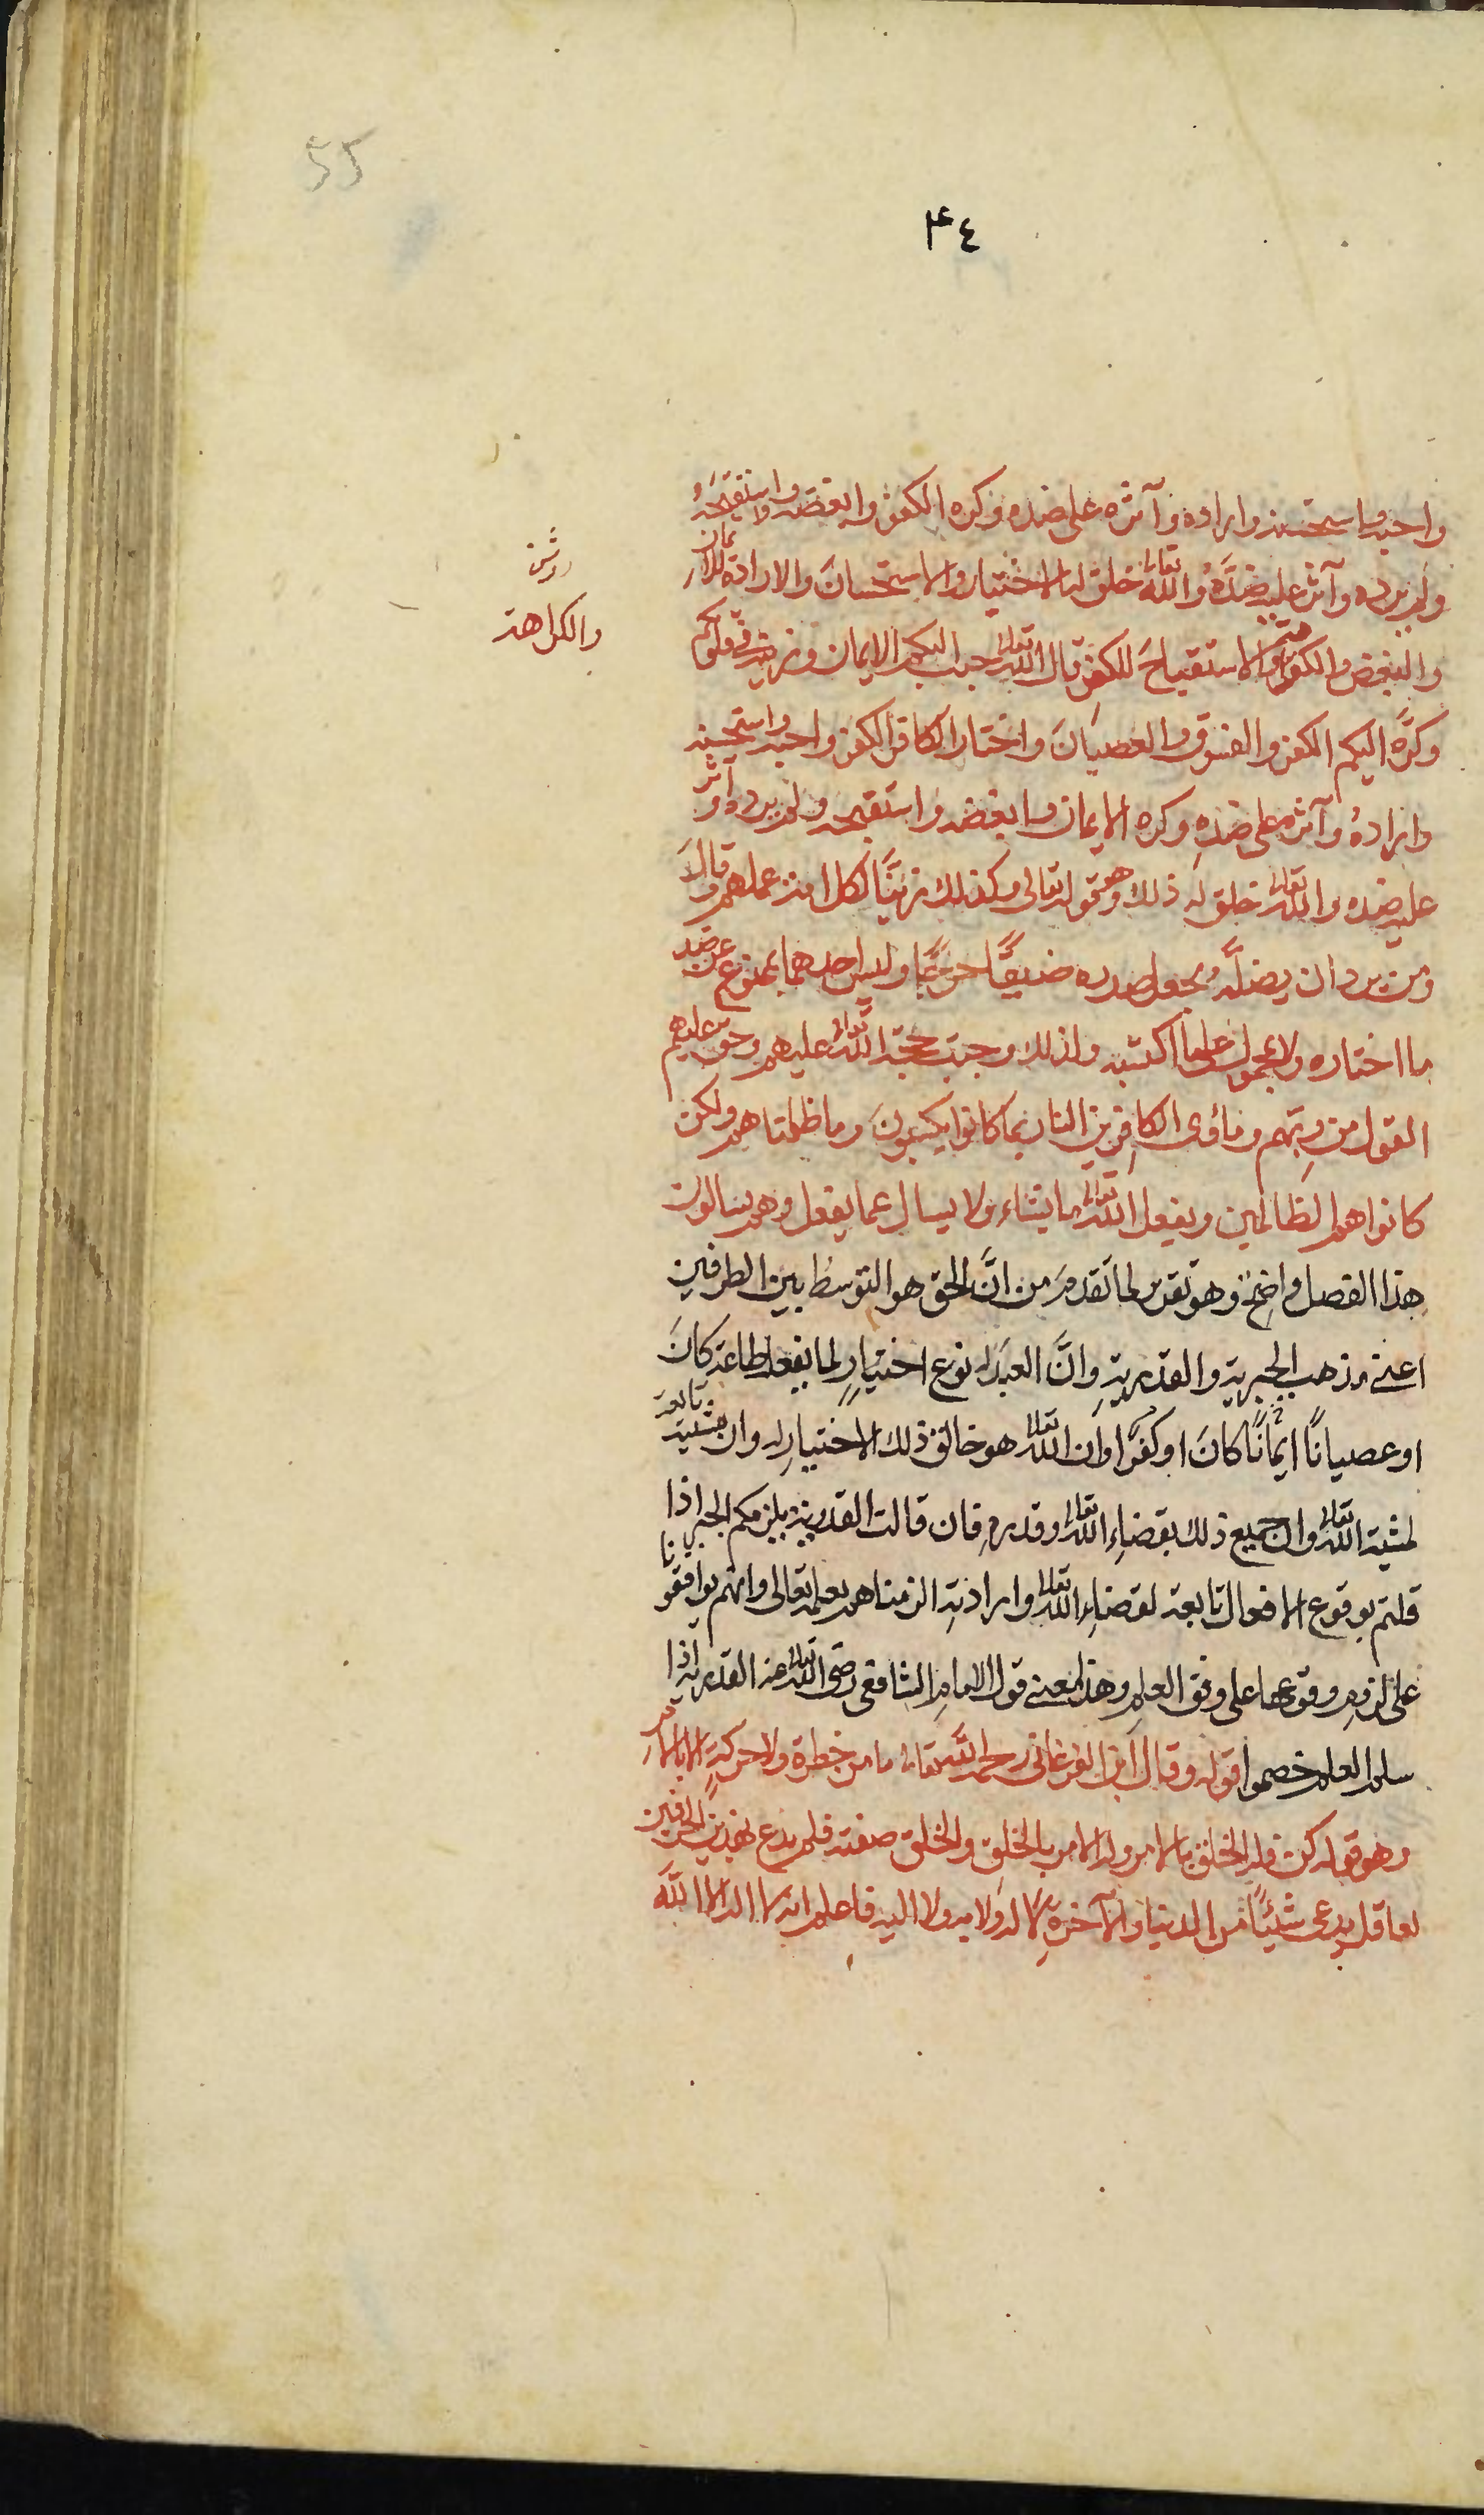 55
٣٤
واحبه واستحسنه واراده وآثره على ضده وكره الكفر وابغضه واستقبحه
ولم يرده وآثر عليه ضدَّهُ والله تعالى خلق له الاختيار والاستحسانَ والارادة للايمان
والبغض والكراهية والاستقباحَ للكفر قال الله تعالى حبب اليكم الايمان وزينه في قلوبكم
والكراهة
وكرَّه اليكم الكفر والفسوق والعصيانَ واختار الكافر الكفر واحبه واستحسنه
وارادهُ وآثره على ضدِهِ وكره الايمان وابغضه واستقبحه ولم يرده وآثر
عليه ضده والله تعالى خلق له ذلك وهو قوله تعالى وكذلك زيَّنَّا لكل امة عملهم وقالَ
ومن يرد ان يضلَّه يجعل صدره ضيقًا حرجًا وليس احدهما بممنوع عن ضد
ما اختاره ولا محمول على ما اكتسبه ولذلك وجبت حجة الله تعالى عليهم وحق عليهم
القول من ربّهم ومأوى الكافرين النار بما كانوا يكسبونَ وما ظلمناهم ولكن
كانوا هم الظالمين ويفعل الله تعالى ما يشاء ولا يسال عما يفعل وهم يسالون
هذا الفصل واضحٌ وهو تقرير لما تقدمَ من انَّ الحق هو التوسطُ بين الطرفين
اعنى مذهب الجبرية والقدريةِ وانَّ العبدَ له نوع اختيارٍ لما يفعله طاعة كانَ
او عصيانًا ايمانًا كانَ او كفرًا وان الله تعالى هو خالق ذلك الاختيارِ له وان مشيته تابعة
لمشية الله تعالى وان جميع ذلك بقضاءِ الله تعالى وقدرهِ فان قالت القدرية يلزمكم الجبر اذا
قلتم بوقوع الافعال تابعة لقضاءِ الله تعالى وارادتهِ الزمناهم بعلمه تعالى وانهم يوافقونا
على لزومِ وقوعها على وفق العلمِ وهذا معنى قول الامامِ الشافعى رضى الله تعالى عنه القدرية اذا
سلموا العلم خصموا قوله وقال ابن الفرغانى رحمه الله تعالى ما من خطرة ولا حركةٍ الا بالامر
وهو قوله كن فله الخلق بالامر وله الامر بالخلقِ والخلق صفته فلم يدع بهذين الحرفين
لعاقل يدعى شيئًا من الدنيا والآخرةِ لا له ولا به ولا اليه فاعلم انه لا اله الا اللهَ